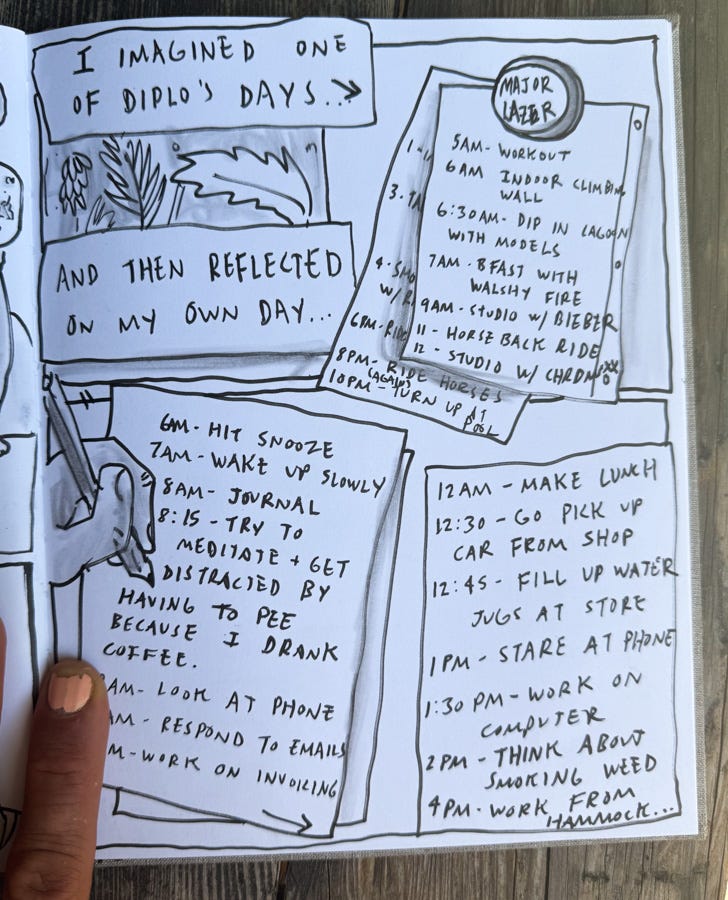 I IMAGINED ONE
OF DIPLO'S DAYS...
AND THEN REFLECTED
ON MY OWN DAY...
MAJOR
LAZER
5AM- WORKOUT
6AM INDOOR CLIMBING
WALL
6:30AM- DIP IN LAGOON
WITH MODELS
7AM- BFAST WITH
WALSHY FIRE
9AM- STUDIO W/ BIEBER
11- HORSE BACK RIDE
12- STUDIO W/ CHRDM
1-
3.
4-
W/
6PM-
8PM- RIDE HORSES
(AGAIN)
10PM- TURN UP AT
POOL
6AM- HIT SNOOZE
7AM- WAKE UP SLOWLY
8AM- JOURNAL
8:15- TRY TO
MEDITATE + GET
DISTRACTED BY
HAVING TO PEE
BECAUSE I DRANK
COFFEE.
AM- LOOK AT PHONE
AM- RESPOND TO EMAILS
M-WORK ON INVOICING
12AM- MAKE LUNCH
12:30- GO PICK UP
CAR FROM SHOP
12:45- FILL UP WATER
JUGS AT STORE
1PM- STARE AT PHONE
1:30PM-WORK ON
COMPUTER
2PM- THINK ABOUT
SMOKING WEED
4PM- WORK FROM
HAMMOCK...